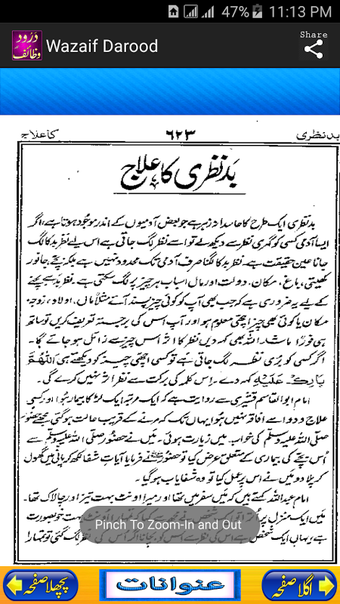 47% 11:13 PM
درود وظائف
Wazaif Darood
Share
بدنظری ۶۲۳ کا علاج
بدنظری کا علاج
بدنظری ایک طرح کا حاسدانہ زہر ہے جو بعض آدمیوں کے اندر موجود ہوتا ہے، اگر
ایسا آدمی کسی کو گہری نظر سے دیکھ لے تو اسے نظر لگ جاتی ہے اس لیے نظر بد کا لگ
جانا عین حقیقت ہے۔ نظر بد کا لگنا صرف آدمی تک محدود نہیں ہے بلکہ بچے جانور
کھیتی، باغ، مکان، دولت اور مال اسباب ہر چیز پر لگ سکتی ہے۔ نظر بد سے بچنے
کے لیے یہ ضروری ہے کہ جب بھی آپ کو کوئی چیز پسند آئے مثلاً ماں، اولاد، زوجہ
مکان یا کوئی بھی چیز اچھی معلوم ہو اور آپ اس کی برجستہ تعریف کریں تو ساتھ
ہی فوراً ماشاء اللہ بھی کہہ دیں نظر کا اثر اس چیز سے زائل ہو جائے گا۔
اگر کسی کو بُری نظر لگ جاتی ہے تو کسی اچھی چیز کو دیکھتے ہی اَللّٰهُمَّ
بَارِكْ عَلَيْهِ کہہ دے۔ اس کلمہ کی برکت سے نظر اثر نہیں کرے گی۔
امام ابوالقاسم قشیری سے روایت ہے کہ ایک مرتبہ ان کا بڑا بیمار ہوا اور کسی
علاج و دوا سے افاقہ نہیں ہوا یہاں تک کہ مرنے کے قریب حالت ہو گئی۔ مجھے حضور
صلی اللہ علیہ وسلم کی خواب میں زیارت ہوئی۔ میں نے حضور صلی اللہ علیہ وسلم سے
اُس بچے کی بیماری کے متعلق عرض کیا تو حضورؐ نے فرمایا آیاتِ شفا لکھ کر پانی میں گھول
کر پلا دو میں نے اس پر عمل کیا تو وہ شفایاب ہو گیا۔
امام عبداللہ کہتے ہیں کہ میں سفر میں تھا اور میرا اونٹ بہت تیز اور چالاک تھا۔
میں ایک منزل پر بہت خوبصورت
ہے یہاں ایک شخص ہے اس کی نظر لگ گئی تو تمہارا
Pinch To Zoom-In and Out
پچھلا صفحہ عنوانات اگلا صفحہ